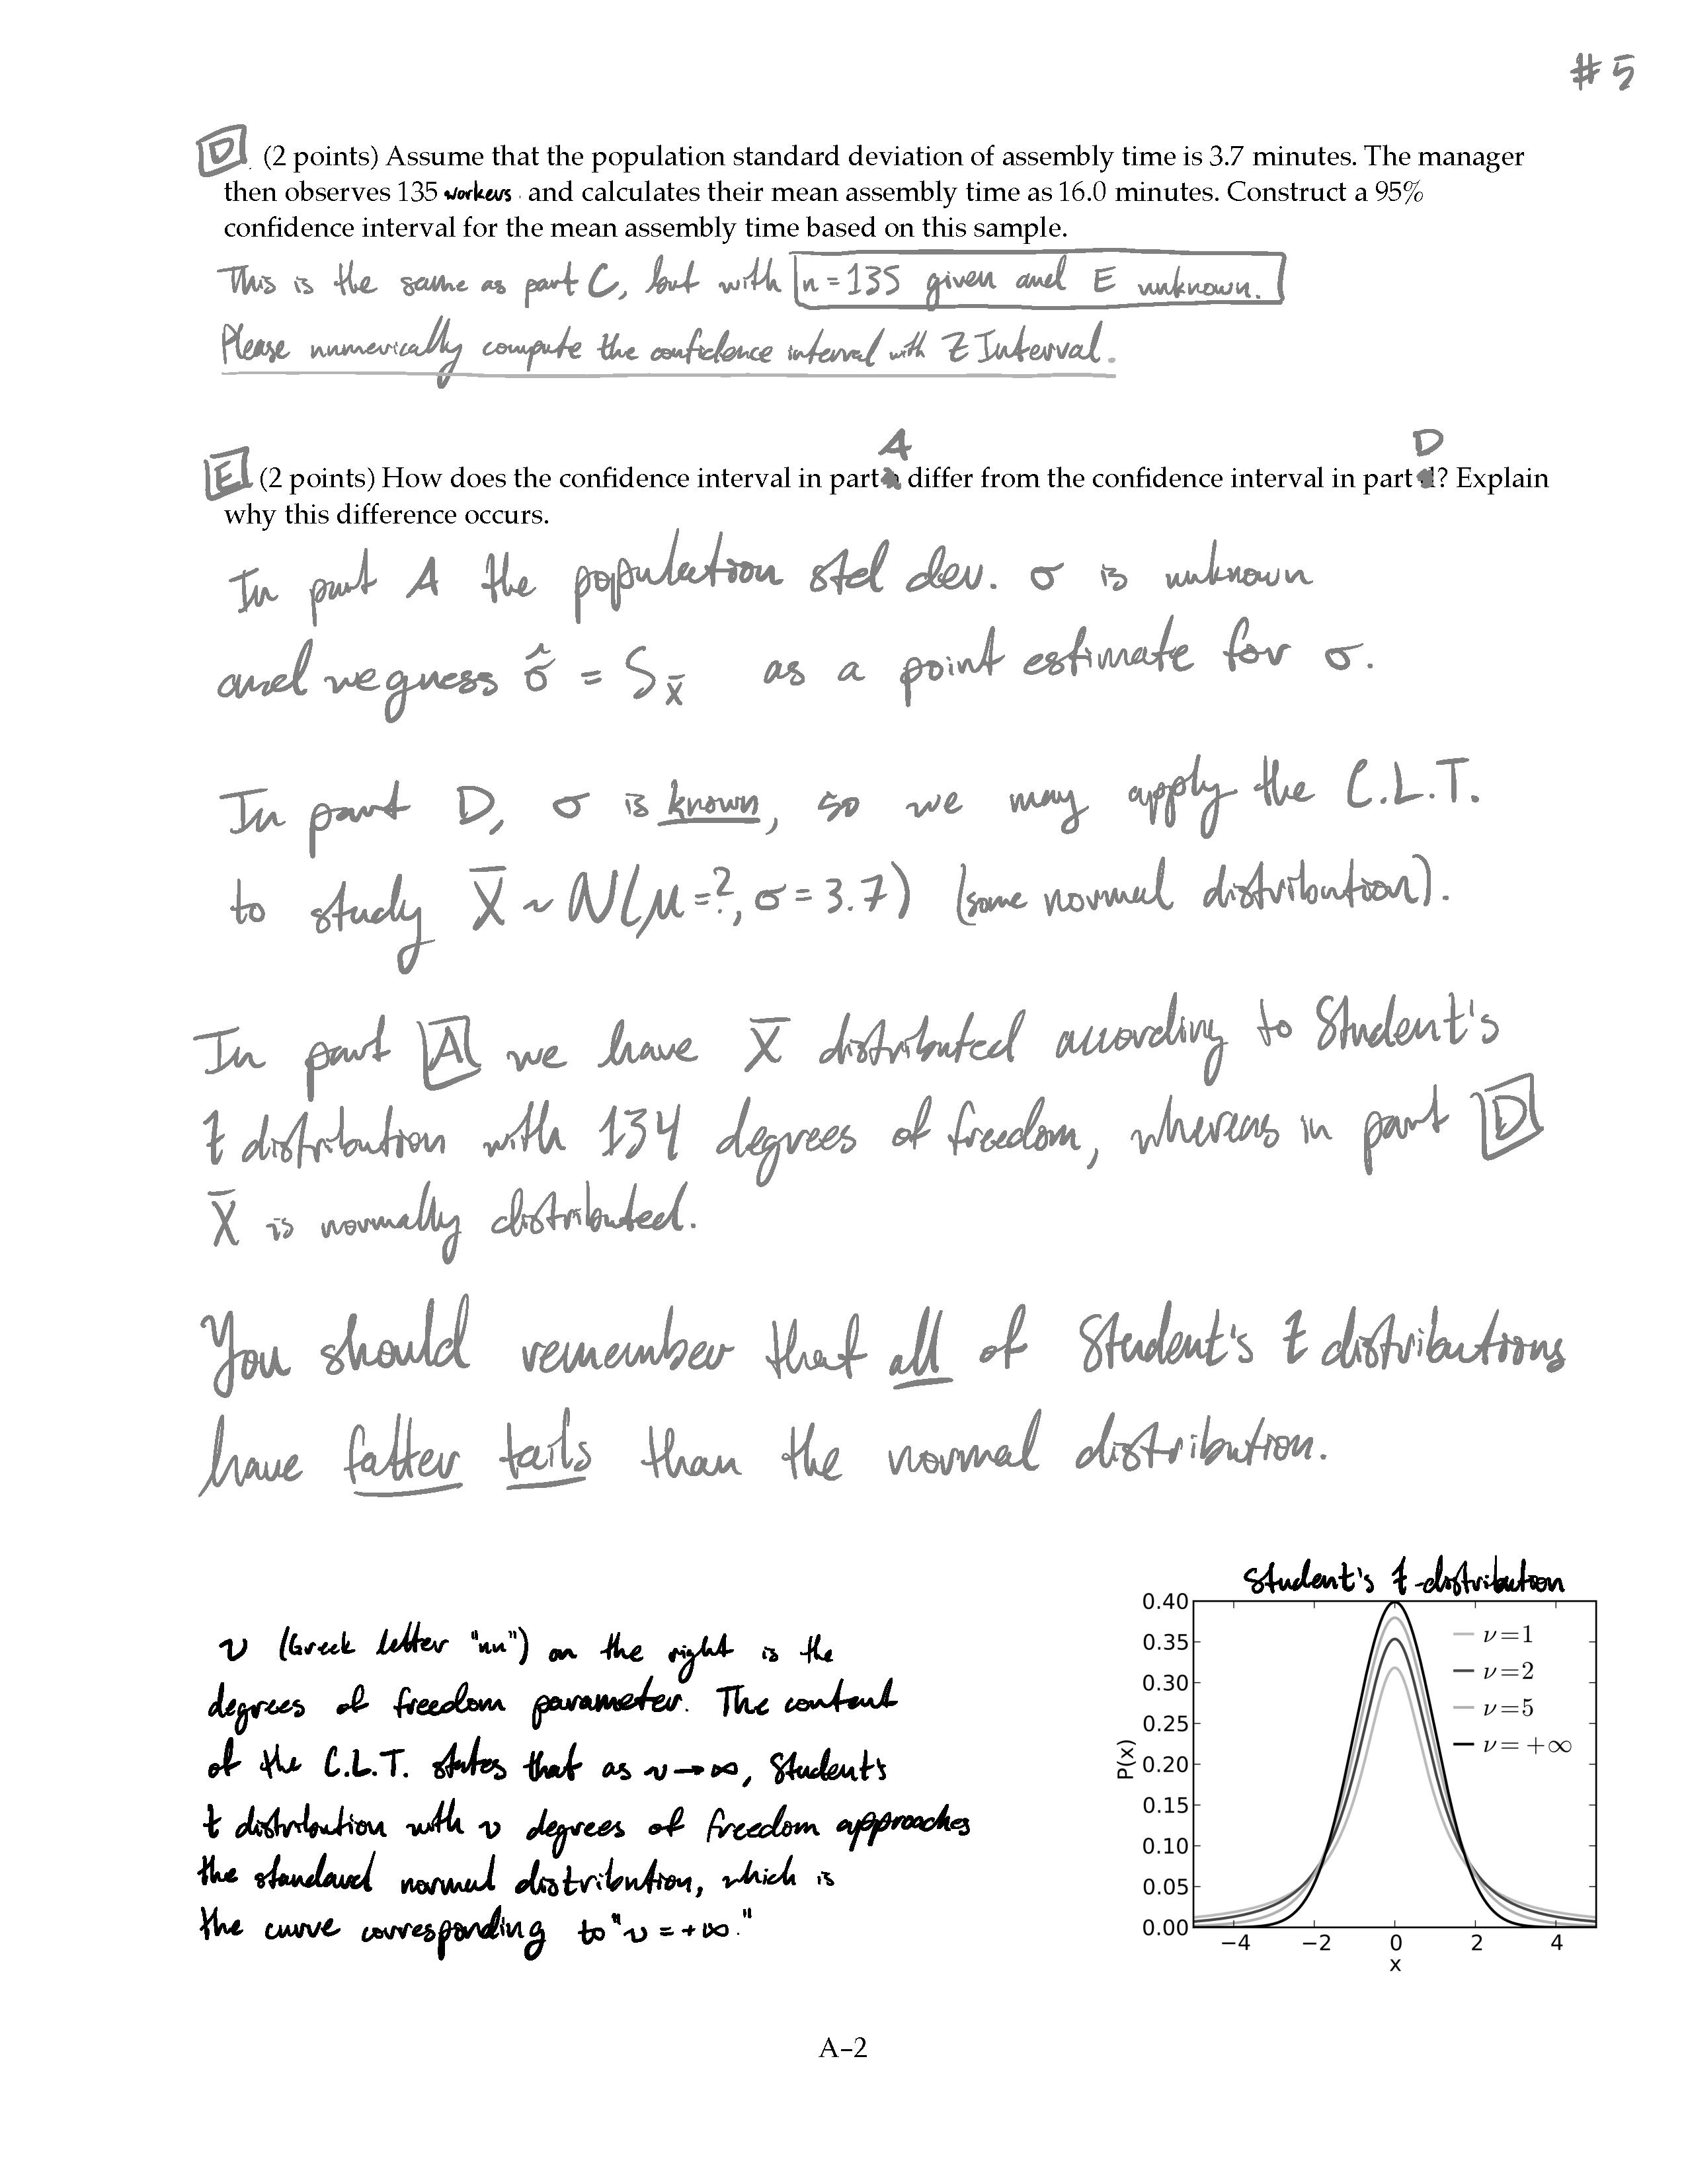 #5
D (2 points) Assume that the population standard deviation of assembly time is 3.7 minutes. The manager
then observes 135 workers and calculates their mean assembly time as 16.0 minutes. Construct a 95%
confidence interval for the mean assembly time based on this sample.
This is the same as part C, but with n = 135 given and E unknown.
Please numerically compute the confidence interval with Z Interval.
A D
E (2 points) How does the confidence interval in part differ from the confidence interval in part ? Explain
why this difference occurs.
In part A the population std dev. σ is unknown
and we guess σ̂ = S_x̄ as a point estimate for σ.
In part D, σ is known, so we may apply the C.L.T.
to study X̄ ~ N(μ=?, σ=3.7) (some normal distribution).
In part A we have X̄ distributed according to Student's
t distribution with 134 degrees of freedom, whereas in part D
X̄ is normally distributed.
You should remember that all of Student's t distributions
have fatter tails than the normal distribution.
ν (Greek letter "nu") on the right is the
degrees of freedom parameter. The content
of the C.L.T. states that as ν→∞, Student's
t distribution with ν degrees of freedom approaches
the standard normal distribution, which is
the curve corresponding to "ν = +∞."
Student's t-distribution
0.40
0.35
0.30
0.25
0.20
0.15
0.10
0.05
0.00
P(x)
ν=1
ν=2
ν=5
ν=+∞
−4 −2 0 2 4
x
A–2